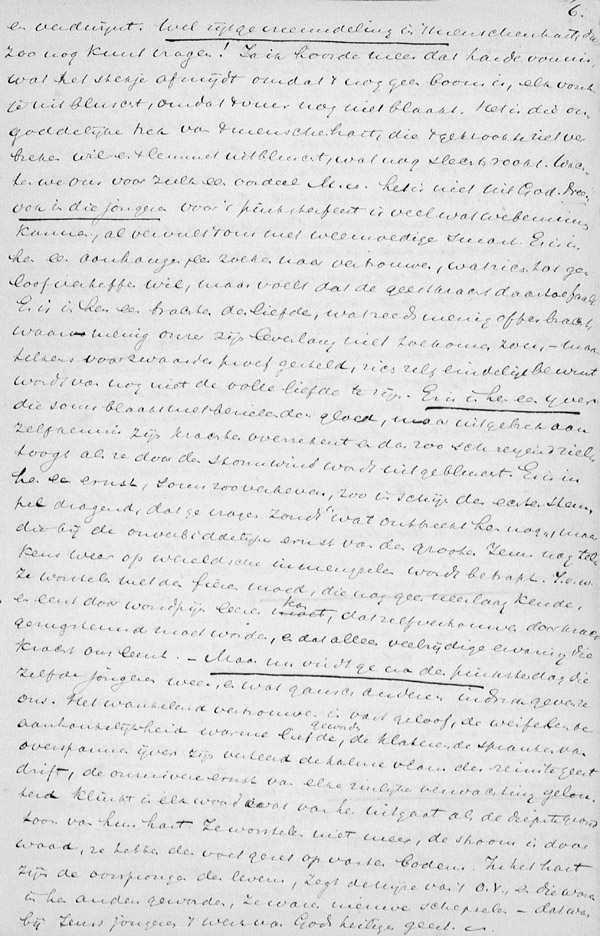 6.
en verdwijnt. Wel rijke vreemdeling in 't menschenhart, die
zoo nog kunt vragen! Ja ik hoorde meer dat harde vonnis,
wat het stekje afsnijdt omdat 't nog geen boom is, elke vonk
uitbluscht, omdat 't vuur nog niet blaakt. Het is die on-
goddelijke trek van 't menschenhart, die 't gekrookte riet ver
breken wil en 't lemmet uitbluscht, wat nog slechts rookt. Wach-
ten we ons voor zulk een oordeel M.. het is niet uit God. Droe
van in die jongeren voor 't pinksterfeest is veel wat we beminnen
kunnen, al vervult 't ons met weemoedige smart. Er is in
hen een aanhangen, een zoeken naar vertrouwen, wat zich tot ge-
loof verheffen wil, maar voelt dat de geestkracht daartoe faalt.
Er is in hen een trachten der liefde, wat reeds menig offer bracht,
waar menig onzer zijn leven lang niet toe komen zou, – maar
telkens voor zwaarder proef gesteld, zich zelf eindelijk bewust
wordt van nog niet de volle liefde te zijn. Er is in hen een ijver
die soms blaakt met benijdenden gloed, maar uit gebrek aan
zelfkennis zijn krachten overschat en dan zoo schreyend zielen
hoogt als ze door den stormwind wordt uitgebluscht. Er is in
hen een ernst, soms zoo verheven, zoo in schijn den echten stem
pel dragend, dat ge vragen zoudt "wat ontbreekt hen nog", maar
die bij de onverbiddelijke ernst van den grooten Zoon nog tel-
kens weer op wereldsche inmengselen wordt betrapt.
Ze worstelen met den fieren moed, die nog geen neerlaag kende,
en eerst door worstelen leeren kan, dat zelfvertrouwen door kracht
gerugsteund moet worden, en dat alleen veelzijdige ervaring die
kracht ons leent. – Maar nu vindt ge na den pinksterdag die
zelfde jongeren weer, en wat gansch anderen indruk geven ze
ons. Het wankelend vertrouwen is vast geloof, de weifelende
aanhankelijkheid warme liefde geworden, de klaterende spranken van
overspannen ijver zijn verteerd de kalme vlam der reinste geest
drift, de onnuivere ernst van elke zinlijke verwachting gelou-
terd klinkt in elk woord wat van hen uitgaat als de diepste grond
toon van hun hart. Ze worstelen niet meer, de stroom is door
waad, ze hebben den voet gezet op vasten bodem. In het hart
zijn de oorsprongen des levens, zegt de wijze van 't O.V., en die waren
in hen anders geworden, ze waren nieuwe schepselen – dat was
bij Jezus jongeren 't werk van Gods heiligen geest.